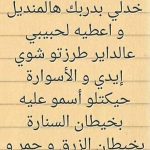 خدلي بدربك هالمنديل
و اعطيه لحبيبي
عالداير طرزتو شوي
إيدي و الأسوارة
حيكتلو أسمو عليه
بخيطان السنارة
بخيطان الزرق و حمر و